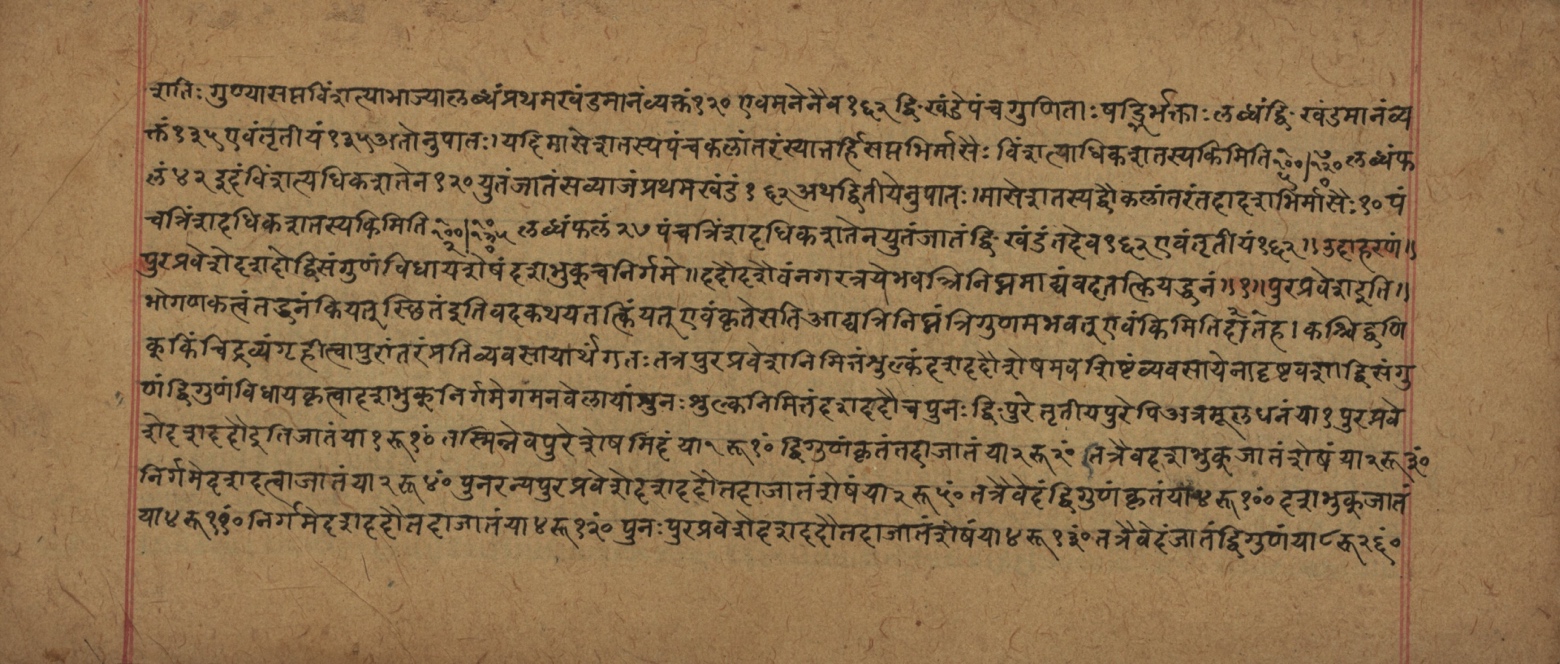 शतिः गुण्यासप्तविंशत्याभाज्यालब्धंप्रथमखंडमानंव्यक्तं१२० एवमनेनैव१६२ द्विखंडेपंचगुणिताःषड्भिर्भक्ताःलब्धंद्विखंडमानंव्य
क्तं१३५एवंतृतीयं१३५अतोनुपातः।यदिमासेशतस्यपंचकलांतरंस्यात्तर्हिसप्तभिर्मासैः विंशत्याधिकशतस्यकिमिति लब्धंफ
लं४२ इदंविंशत्यधिकशतेन१२०युतंजातंसव्याजंप्रथमखंडं१६२अथद्वितीयेनुपातः।मासेशतस्यद्वौकलांतरंतदादशभिर्मासैः१०पं
चत्रिंशदधिकशतस्यकिमिति लब्धंफलं२७ पंचत्रिंशदधिकशतेनयुतंजातंद्विखंडंतदेव१६२एवंतृतीयं१६२॥उदाहरणं॥
पुरप्रवेशेदशदोद्विसंगुणंविधायशेषंदशभुक्चनिर्गमे॥ददौदशैवंनगरत्रयेभवत्त्रिनिघ्नमाद्यंवदतत्कियद्धनं॥१॥पुरप्रवेशइति॥
भोगणकत्वंतद्धनंकियत्स्थितंइतिवदकथयतत्कियत्एवंकृतेसतिआद्यत्रिनिघ्नंत्रिगुणमभवत्एवंकिमितिह।कश्चिद्वणि
क्किंचिद्रव्यंगृहीत्वापुरांतरंप्रतिव्यवसायार्थंगतःतत्रपुरप्रवेशनिमित्तंशुल्कंदशददौशेषमवशिष्टंव्यवसायेनादृष्टवशाद्विसंगु
णंद्विगुणंविधायकृत्वादशभुक्निर्गमेगमनवेलायांपुनःशुल्कनिमित्तंदशददौचपुनःद्विपुरेतृतीयपुरेपिअत्रमूलधनंया१पुरप्रवे
शेदशददौइतिजातंया१रू१०ं तस्मिन्नेवपुरेशेषमिदंया१रू१०ं द्विगुणंकृतंतदाजातंया२रू२०ं तत्रैवदशभुक्जातंशेषंया२रू३०ं
निर्गमेदशदत्वाजातंया२रू४०ं पुनरन्यपुरप्रवेशेदशददौतदाजातंशेषंया२रू५०ं तत्रैवेदंद्विगुणंकृतंया४रू१००ं दशभुक्जातं
या४रू११०ं निर्गमेदशददौतदाजातंया४रू१२०ं पुनःपुरप्रवेशेदशददौतदाजातंशेषंया४रू१३०ं तत्रैवेदंजातंद्विगुणंया८रू२६०ं